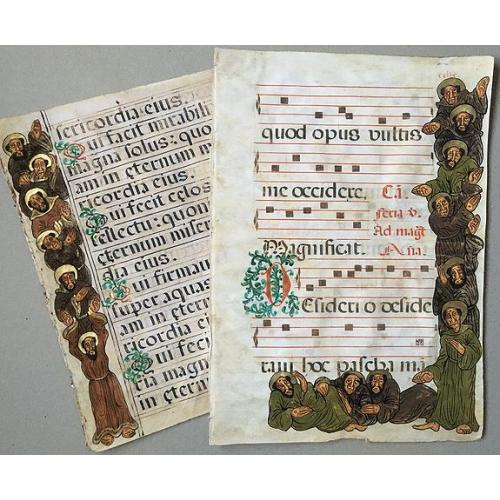 sericordia eius.
Qui facit mirabili
magna solus: quo
am in eternum m
ricordia eius.
Qui fecit celos
tellectu: quon
eternum miser
dia eius.
Qui firmau
super aquas
am in etern
ricordia eiu
Qui feci
ria magn
in etern
quod opus vultis
me occidere.
feria v.
Ad mag̃t
Magnificat.
Desiderio deside
raui hoc pascha mā